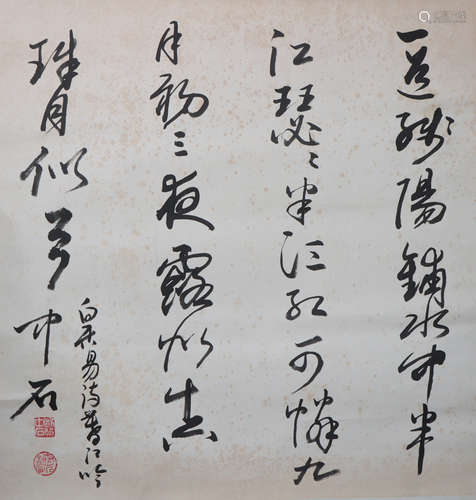 一道残陽鋪水中半
江瑟瑟半江紅可憐九
月初三夜露似真
珠月似弓
白居易詩暮江吟
中石